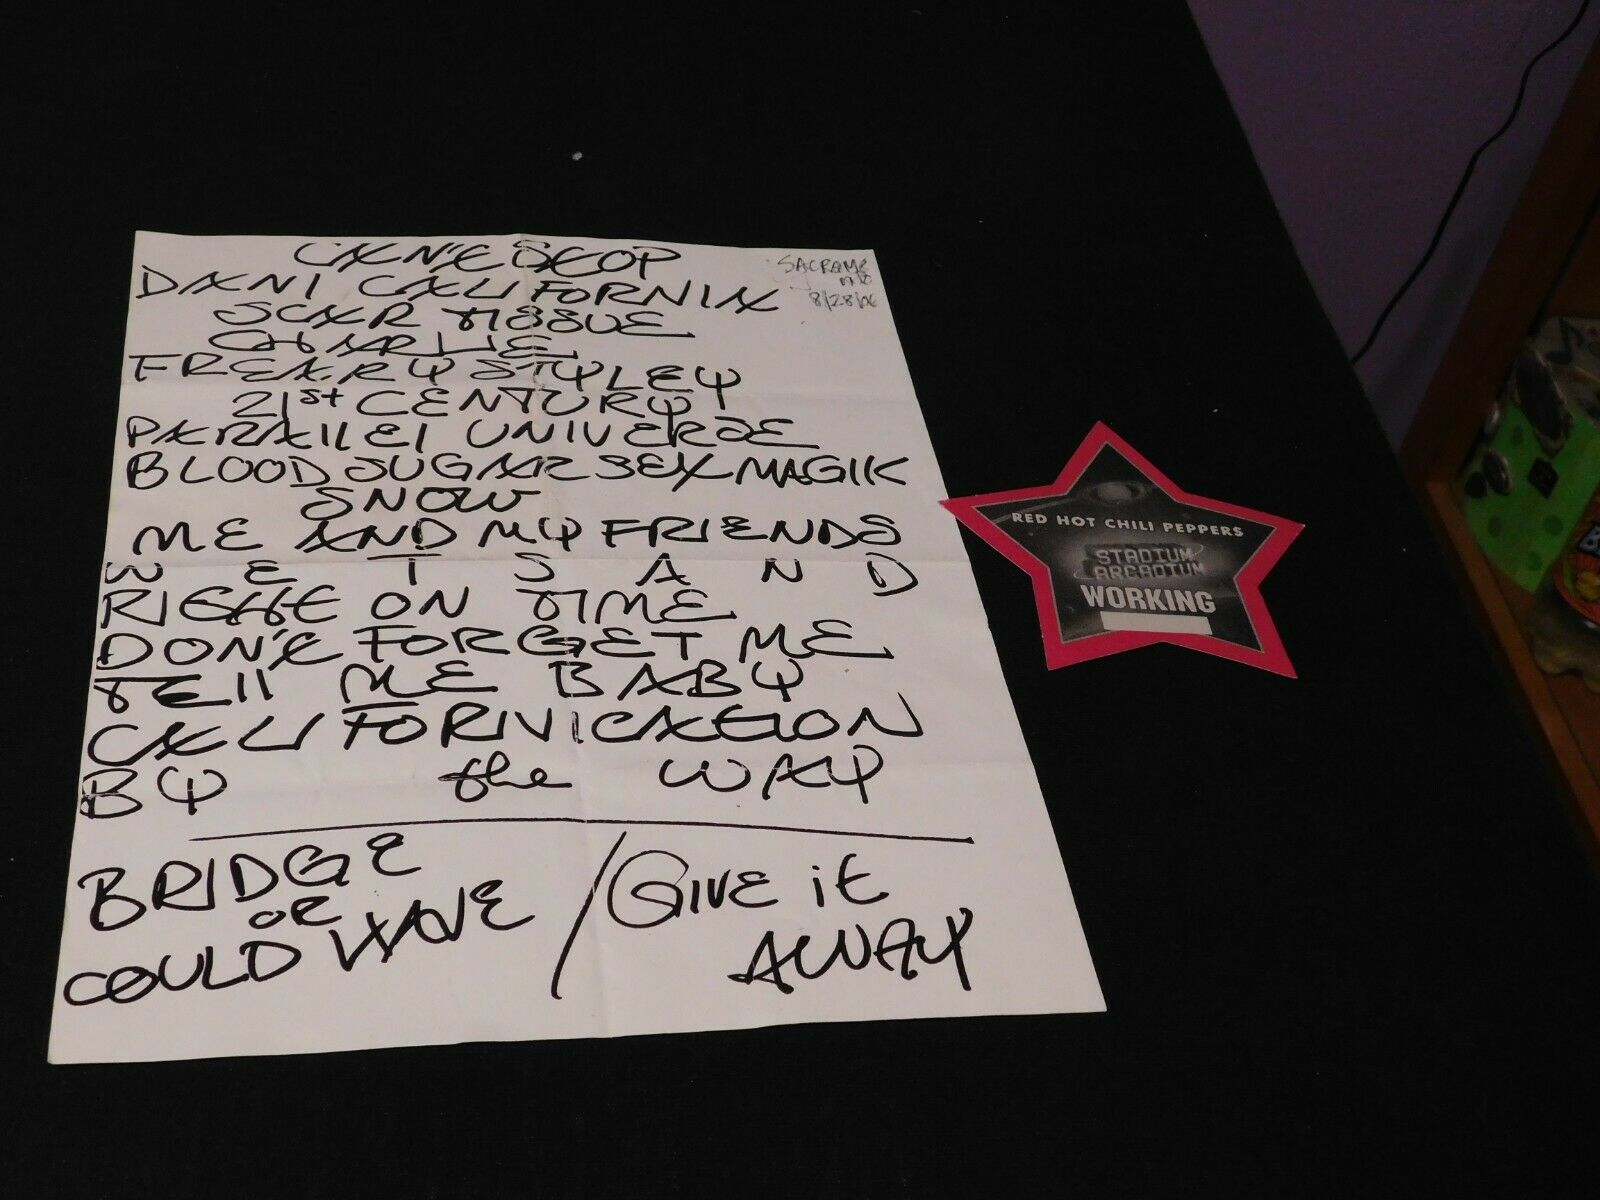 CAN'T STOP
SACRAME
NTO
8/28/06
DANI CALIFORNIA
SCAR TISSUE
CHARLIE
FREAKY STYLEY
21st CENTURY
PARALLEL UNIVERSE
BLOOD SUGAR SEX MAGIK
SNOW
ME AND MY FRIENDS
WET SAND
RIGHT ON TIME
DON'T FORGET ME
TELL ME BABY
CALIFORNICATION
BY the WAY
BRIDGE
OR
COULD HAVE / GIVE it
AWAY
RED HOT CHILI PEPPERS
STADIUM
ARCADIUM
WORKING